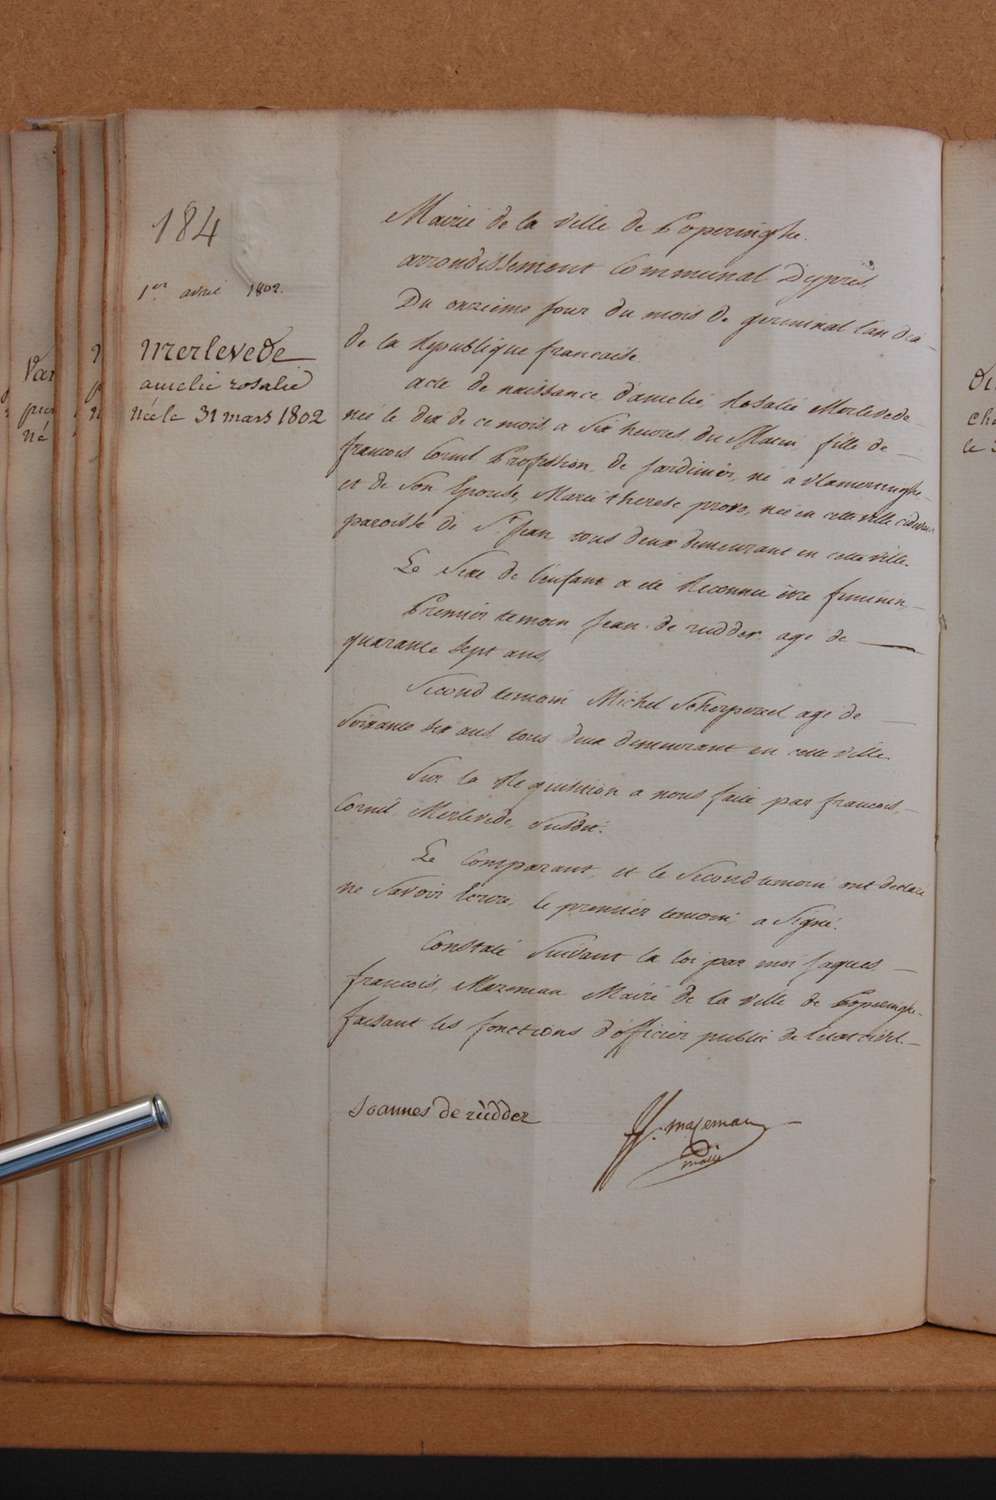 184
1er. avril 1802.
Merlevede
amelie rosalie
née le 31 mars 1802
Mairie de la Ville de Poperinghe.
arrondissement Communal D'ypres,
Du onzieme Jour du mois de germinal l'an dix
de la Republique francaise.
acte de naissance d'amelie Rosalie Merlevede
née le dix de ce mois a six heures du Matin, fille de
francois Cornil Profession de Jardinier, né a Vlamertinghe
et de Son Epouse, Marie therese provo, née en cette ville
paroisse de St Jean, tous deux demeurant en cette ville.
Le Sexe de l'enfant a été Reconnu être feminin
Premier temoin Jean de rudder agé de
quarante Sept ans,
Second temoin Michel Scherpereel agé de
Soixante six ans tous deux demeurant en cette ville.
Sur la Requisition a nous faite par francois
Cornil Merlevede, Susdit.
Le Comparant, et le Second temoin ont declaré
ne Savoir Ecrire, le premier temoin a Signé.
Constaté Suivant la loi par moi Jaques
francois, Mazeman Maire de la Ville de Poperinghe
faisant les fonctions d'officier public de l'etat civil.
Joannes de rùdder
JF. mazeman
maire
Var
né
le 3